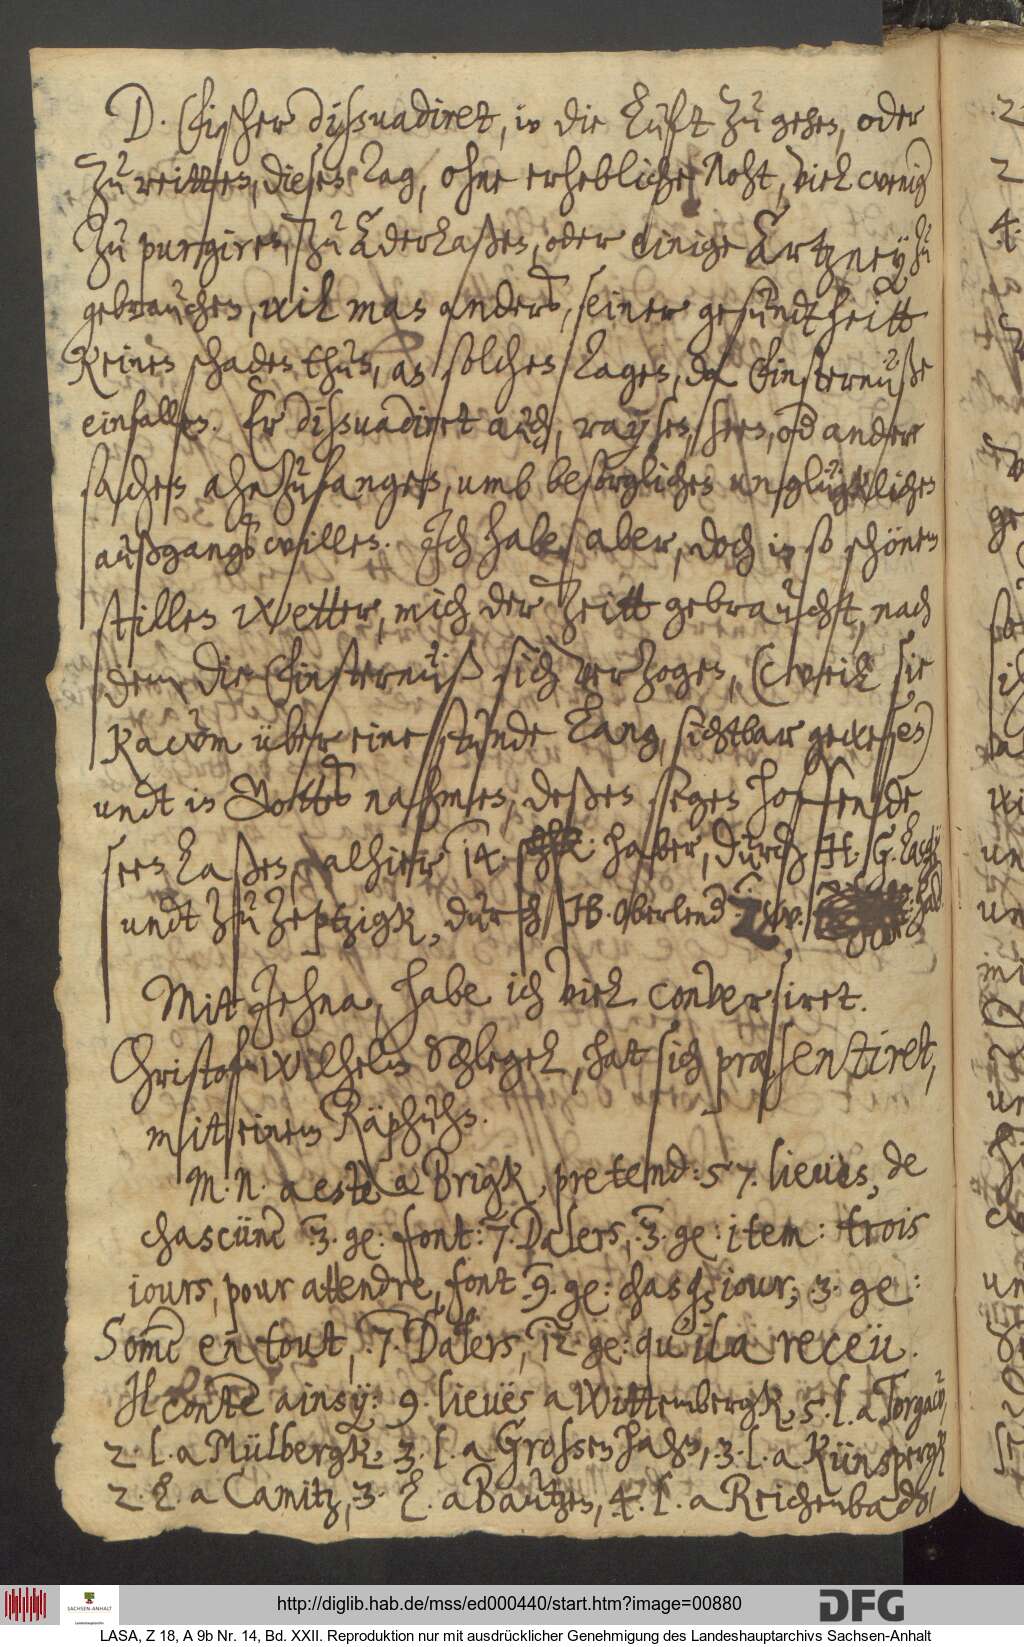 D. Fischer dissuadiret, in die Luft zu gehen, oder
zu reitten, diesen Tag, ohne erhebliche Noht, viel wenig
zu purgiren, zu Aderlaßen, oder einige Artzney zu
gebrauchen, wil mas anders, seiner gesundtheitt
keinen schaden thun, an solchen Tagen, da Finsternüße
einfallen. Er dissuadiret auch, raysen, seen, od andere
sachen ahnzufangen, umb besorglichen unglücklichen
außgangs willen. Ich habe aber, doch in so schönem
stillen Wetter, mich der Zeitt gebraucht, nach
dem die Finsternüß sich verzogen, (weil sie
kaum über eine stunde lang, sichtbar gewesen)
undt in Gottes nahmen, deßen segen hoffende
seen laßen, alhier 14. haber, durch H. G.
undt zu Zeptzigk, durch H. Oberlend
Mit Jehna, habe ich viel conversiret.
Christof Wilhelm Schlegel, hat sich præsentiret,
mit einem Räphuhn.
M. N. a estè a Brigk, pretend: 57. lieuës, de
chascünc 3. gr: font: 7. Dalers, 3. gr: item: trois
iours, pour attendre, font 9. gr: chasq iour, 3. gr:
Somc̃ en tout, 7. Dalers, 12 gr: qu'il a receü.
Il conte ainsy: 9. lieuës a Wittembergk, 5. l. a Torgaw,
2. l. a Mülbergk, 3. l. a Grossenhahn, 3. l. a Künspergk
2. l. a Camitz, 3. l. a Bautzen, 4. l. a Reichenbach
http://diglib.hab.de/mss/ed000440/start.htm?image=00880
SACHSEN-ANHALT
DFG
LASA, Z 18, A 9b Nr. 14, Bd. XXII. Reproduktion nur mit ausdrücklicher Genehmigung des Landeshauptarchivs Sachsen-Anhalt